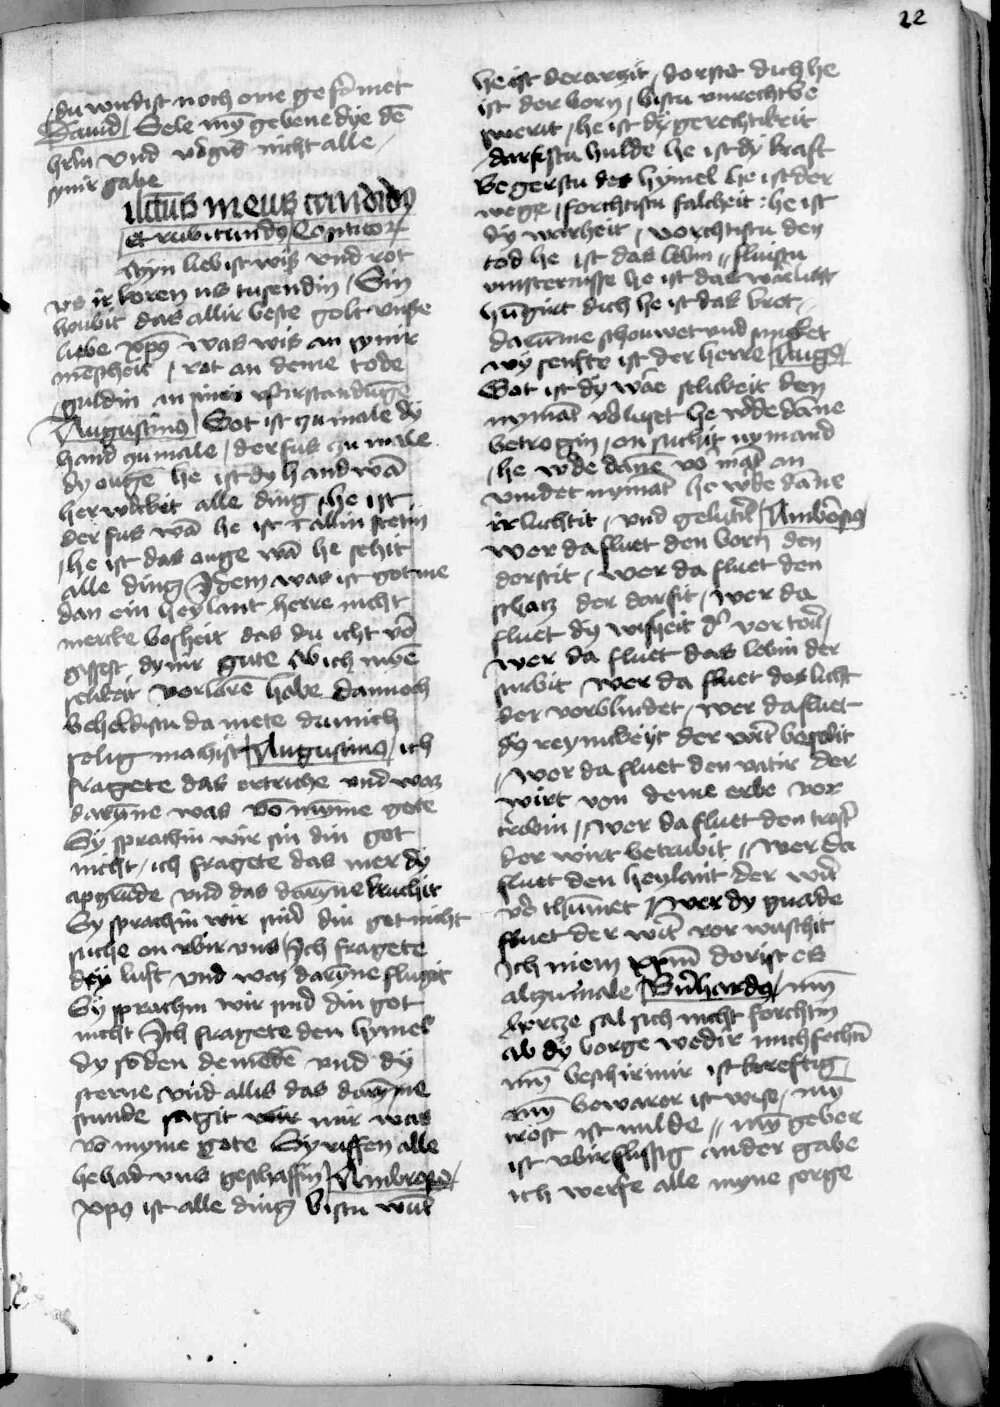 22
du wirdist noch ome gefurmet
Dauid / Sele myn gebenedye de
hern und vorgis nicht alle
synir gabe
ilectus meus candidus
et rubicundus Canticor
Myn lieb ist wiß vnd rot
vs ir koren us tusendin / Sin
houbit das allir beste golt vnse
liebe xpus was wis an synir
mēscheit / rot an deme tode
guldin an sinir vfirstandunge
Augustinus / Got ist zu male dy
hand zu male / der fus zu male
dy ougē he ist dy hand wā
her wirkit alle ding / he ist
der fus wā he ist ī allin stetin
/ he ist das ouge wā he sehit
alle ding / Idem was ist got me
dan ein heylant herre nicht
mercke bosheit das du icht vor
gissest dynir gute Ab ich myne
selikeit vorlorē habe dannoch
beheldistu da mete du mich
selig machist / Augustinus / ich
fragete das ertriche vnd was
darūne was vō myme gote
Sy sprachin wir sin din got
nicht / ich fragete das mer dy
apgrūde vnd das daryne kruchit
Sy sprachin wir sind din got nicht
suche on vbir vns / Ich fragete
dy luft vnd was daryne flugit
Sy sprachin wir sind din got
nicht Ich fragete den hymel
dy sōden den mādē vnd dy
sterne vnd allis das daryne
stunde sagit mir was
vō myme gote Sy riffen alle
he had vns geschaffin / Ambrosius
xpus ist alle ding bistu wūt
he ist der arzit / dorstet dich he
ist der born / bistu vnrechtbe
swerit / he ist dy gerechtikeit
darfistu hulde he ist dy kraft
Begerstu des hymel he ist der
wege / forchtistu falcheit : he ist
dy warheit / vorchtistu den
tod he ist das lebin // fluistu
vinsternisse he ist das ware licht
hūgirt dich he ist das brot /
darūme schouwet vnd smeket
wy senfte ist der herre / Aug
Got ist dy ware selikeit den
nymāt vorluset he werde dāne
betrogin / on suchit nymand
/ he werde danē vor māt an
vindet nymāt he werde dāne
irluchtit / vnd gelutirt / Ambrosius
Wer da fluet den born den
dorstit / wer da fluet den
schatz der darfit / wer da
fluet dy wisheit der vor tort /
wer da fluet das lebin der
stirbit / wer da fluet des licht
der vorblindet / wer da fluet
dy reynikeyt der wirt beflekit
// Wer da fluet den vatir der
wirt von deme erbe vor
trebin // Wer da fluet den trost
der wirt betrubit // Wer da
fluet den heylant der wirt
vor thumet // Wer dy gnade
fluet der wirt vor wuschit
Ich niem xpum dorist es
alzu male / Bernhardus / myn
hercze sal sich nicht forchtin
ab dy berge wedir mich fechtin
myn beschirmir ist kreftig
myn bewarer ist wise / myn
trost ist milde // myn geber
ist vbirflussig an der gabe
ich werfe alle myne sorge